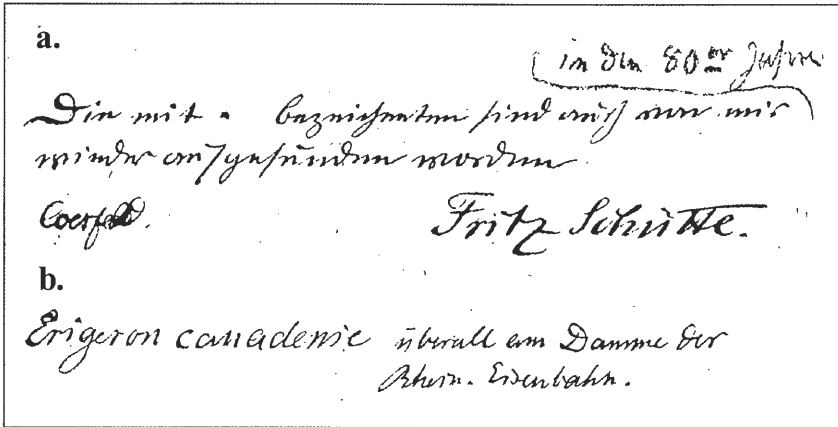 a.
in den 80er Jahren
Die mit • bezeichneten sind auch von mir
wieder aufgefunden worden
Coesfeld.
Fritz Schütte.
b.
Erigeron canadense überall am Damme der
Rhein. Eisenbahn.